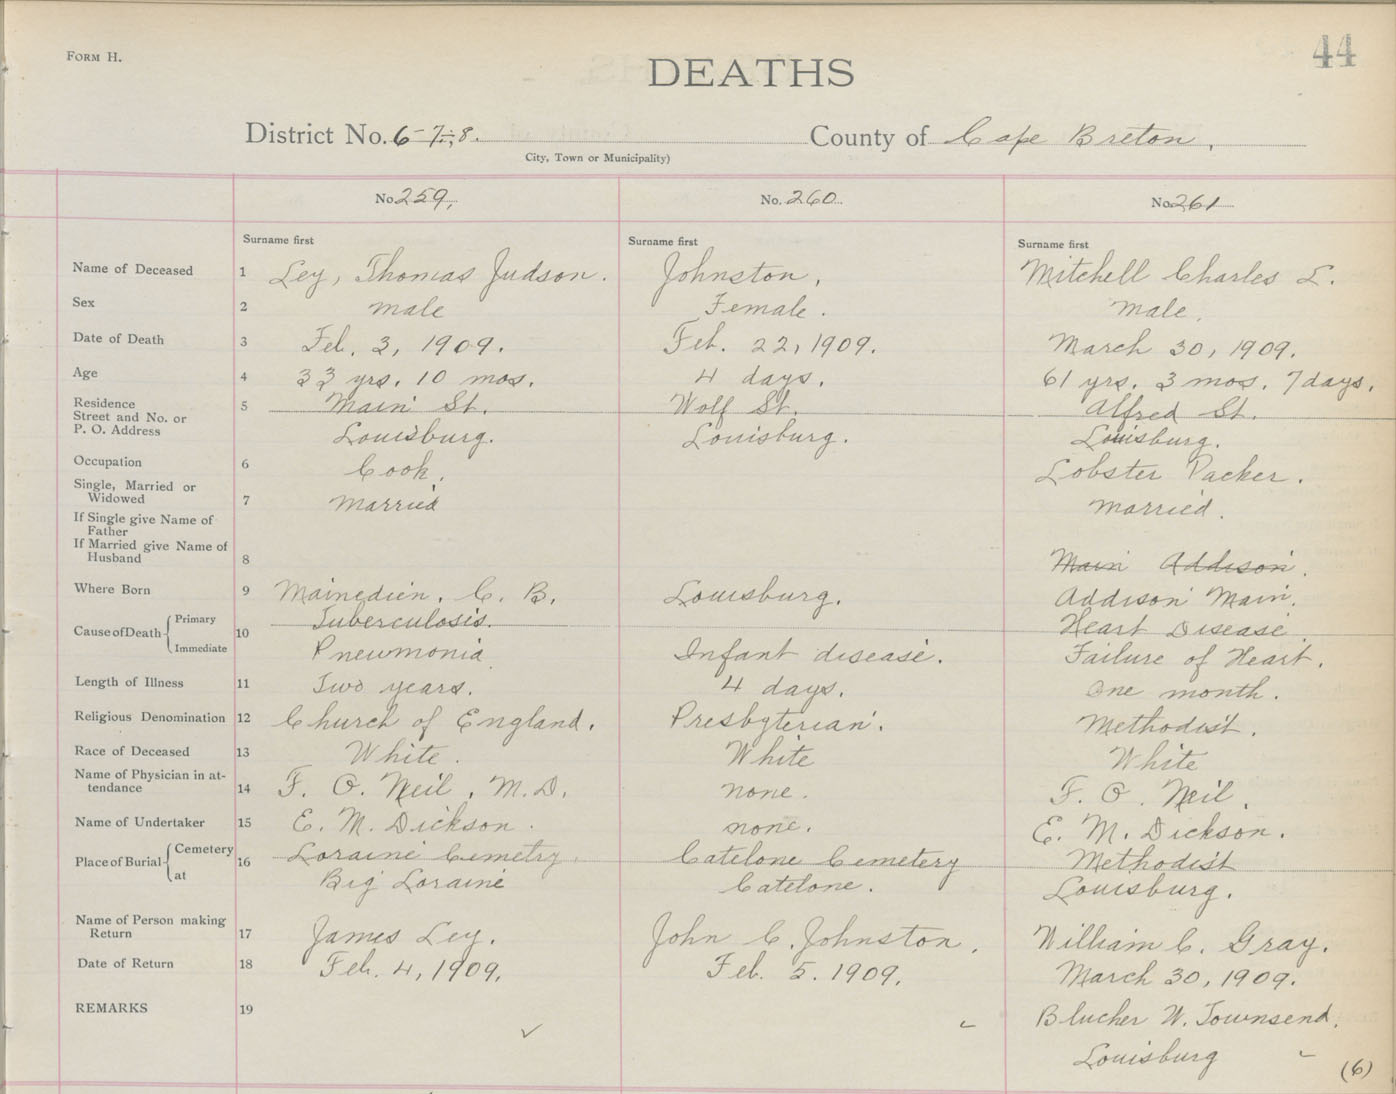 FORM H.
44
DEATHS
District No. 6-7-8. County of Cape Breton,
City, Town or Municipality)
No. 259, No. 260 No. 261
Surname first Surname first Surname first
Name of Deceased 1 Ley, Thomas Judson. Johnston, Mitchell Charles L.
Sex 2 male Female. male.
Date of Death 3 Feb. 3, 1909. Feb. 22, 1909. March 30, 1909.
Age 4 33 yrs. 10 mos. 4 days. 61 yrs. 3 mos. 7 days.
Residence 5 Main St. Wolf St. Alfred St.
Street and No. or
P. O. Address Louisburg. Louisburg. Louisburg.
Occupation 6 Cook. Lobster Packer.
Single, Married or
Widowed 7 Married married.
If Single give Name of
Father
If Married give Name of
Husband 8 Main Addison.
Where Born 9 Mainedieu. C. B. Louisburg. Addison Main.
Cause of Death Primary 10 Tuberculosis. Heart Disease.
Immediate Pneumonia Infant disease. Failure of Heart.
Length of Illness 11 Two years. 4 days. One month.
Religious Denomination 12 Church of England. Presbyterian. Methodist.
Race of Deceased 13 White. White White
Name of Physician in at-
tendance 14 F. O. Neil, M.D. none. F. O. Neil.
Name of Undertaker 15 E. M. Dickson. none. E. M. Dickson.
Place of Burial Cemetery 16 Loraine Cemetry. Catelone Cemetery Methodist
at Big Loraine Catelone. Louisburg.
Name of Person making
Return 17 James Ley. John C. Johnston. William C. Gray.
Date of Return 18 Feb. 4, 1909. Feb. 5. 1909. March 30, 1909.
REMARKS 19 Blucher W. Townsend.
Louisburg
(6)